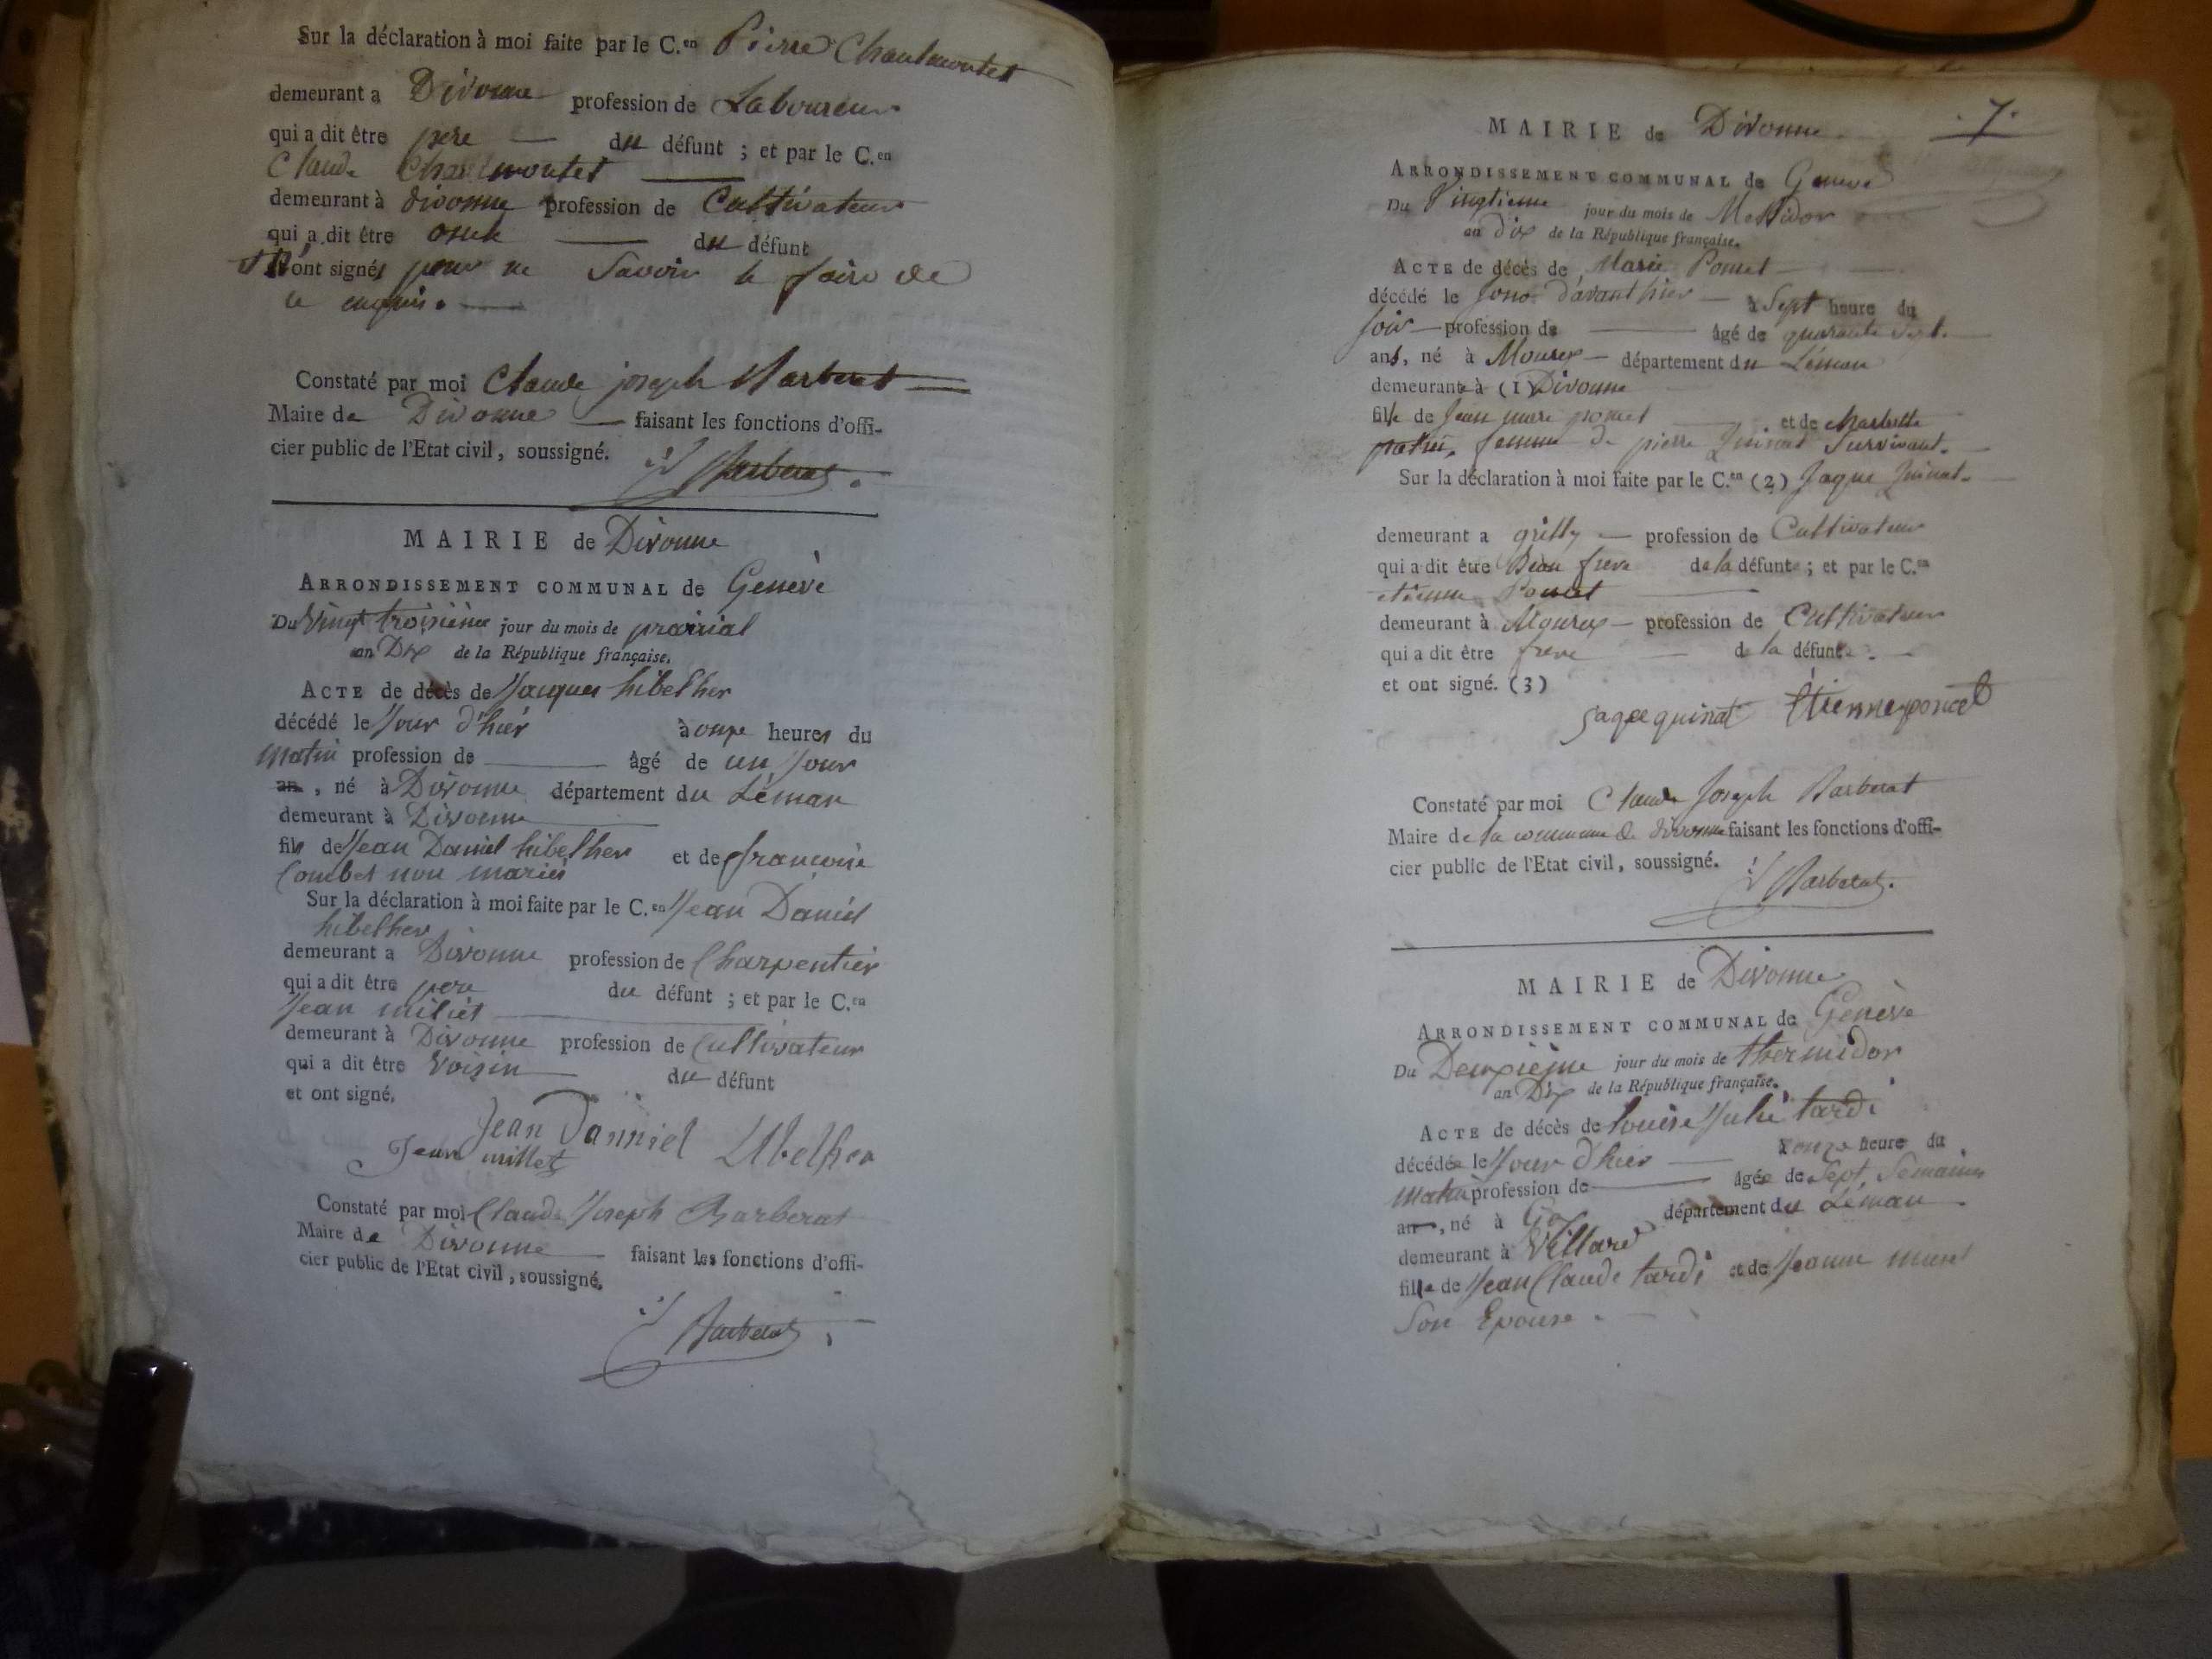 Sur la déclaration à moi faite par le C.en Pierre Chaulmontet
demeurant a Divonne profession de Laboureur
qui a dit être pere du défunt ; et par le C.en
Claude Chaulmontet
demeurant à divonne profession de Cultivateur
qui a dit être oncle du défunt
n'ont signés pour ne Savoir le faire de
ce enquis.
Constaté par moi Claude joseph Barberat
Maire de Divonne faisant les fonctions d'offi-
cier public de l'Etat civil, soussigné.
Barberat.
MAIRIE de Divonne
ARRONDISSEMENT COMMUNAL de Genève
Du Vingt troisième jour du mois de prairial
an Dix de la République française.
ACTE de décès de Jacques hibelher
décédé le Jour d'hier à onze heures du
matin profession de âgé de un Jour
an, né à Divonne département du Léman
demeurant à Divonne
fils de Jean Daniel hibelher et de françoise
Combet non mariés
Sur la déclaration à moi faite par le C.en Jean Daniel
hibelher
demeurant a Divonne profession de Charpentier
qui a dit être pere du défunt ; et par le C.en
Jean miliet
demeurant à Divonne profession de Cultivateur
qui a dit être Voisin du défunt
et ont signé.
Jean Danniel Ubelher
Jean millet
Constaté par moi Claude Joseph Barberat
Maire de Divonne faisant les fonctions d'offi-
cier public de l'Etat civil, soussigné.
Barberat.
7.
MAIRIE de Divonne
ARRONDISSEMENT COMMUNAL de Geneve
Du Vingtieme jour du mois de Messidor
an dix de la République française.
ACTE de décès de Marie Poncet
décédé le Jour d'avant hier à Sept heure du
Soir profession de âgé de quarante Sept
ans, né à Mourex département du Léman
demeurante à (1) Divonne
fille de Jean marc poncet et de charlotte
femme de pierre Quinat Survivant.
Sur la déclaration à moi faite par le C.en (2) Jaque Quinat
demeurant a grilly profession de Cultivateur
qui a dit être Beau frere de la défunte ; et par le C.en
etienne Poncet
demeurant à Mourex profession de Cultivateur
qui a dit être frere de la défunte.
et ont signé. (3)
Jaque quinat Etienne poncet
Constaté par moi Claude Joseph Barberat
Maire de la commune de divonne faisant les fonctions d'offi-
cier public de l'Etat civil, soussigné.
Barberat.
MAIRIE de Divonne
ARRONDISSEMENT COMMUNAL de Genève
Du Deuxième jour du mois de thermidor
an Dix de la République française.
ACTE de décès de Louise Julie tardi
décédée le Jour d'hier à onze heure du
matin profession de âgée de Sept Semaines
an, né à Gex département du Léman
demeurant à Villard
fille de Jean Claude tardi et de Jeanne
Son Epouse.